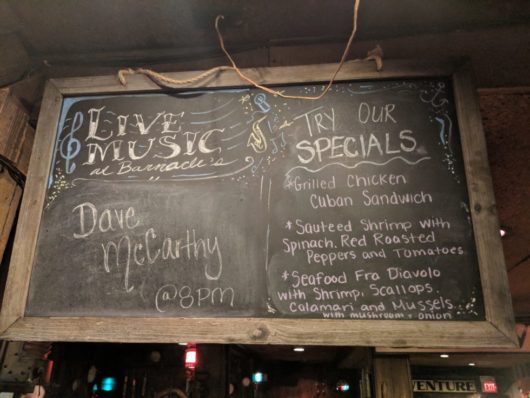 LIVE
MUSIC
at Barnacle's
Dave
McCarthy
@8PM
TRY OUR
SPECIALS
*Grilled Chicken
Cuban Sandwich
*Sauteed Shrimp with
Spinach, Red Roasted
Peppers and Tomatoes
*Seafood Fra Diavolo
with Shrimp, Scallops,
Calamari and Mussels
with mushroom + onion
VENTURE
EXIT